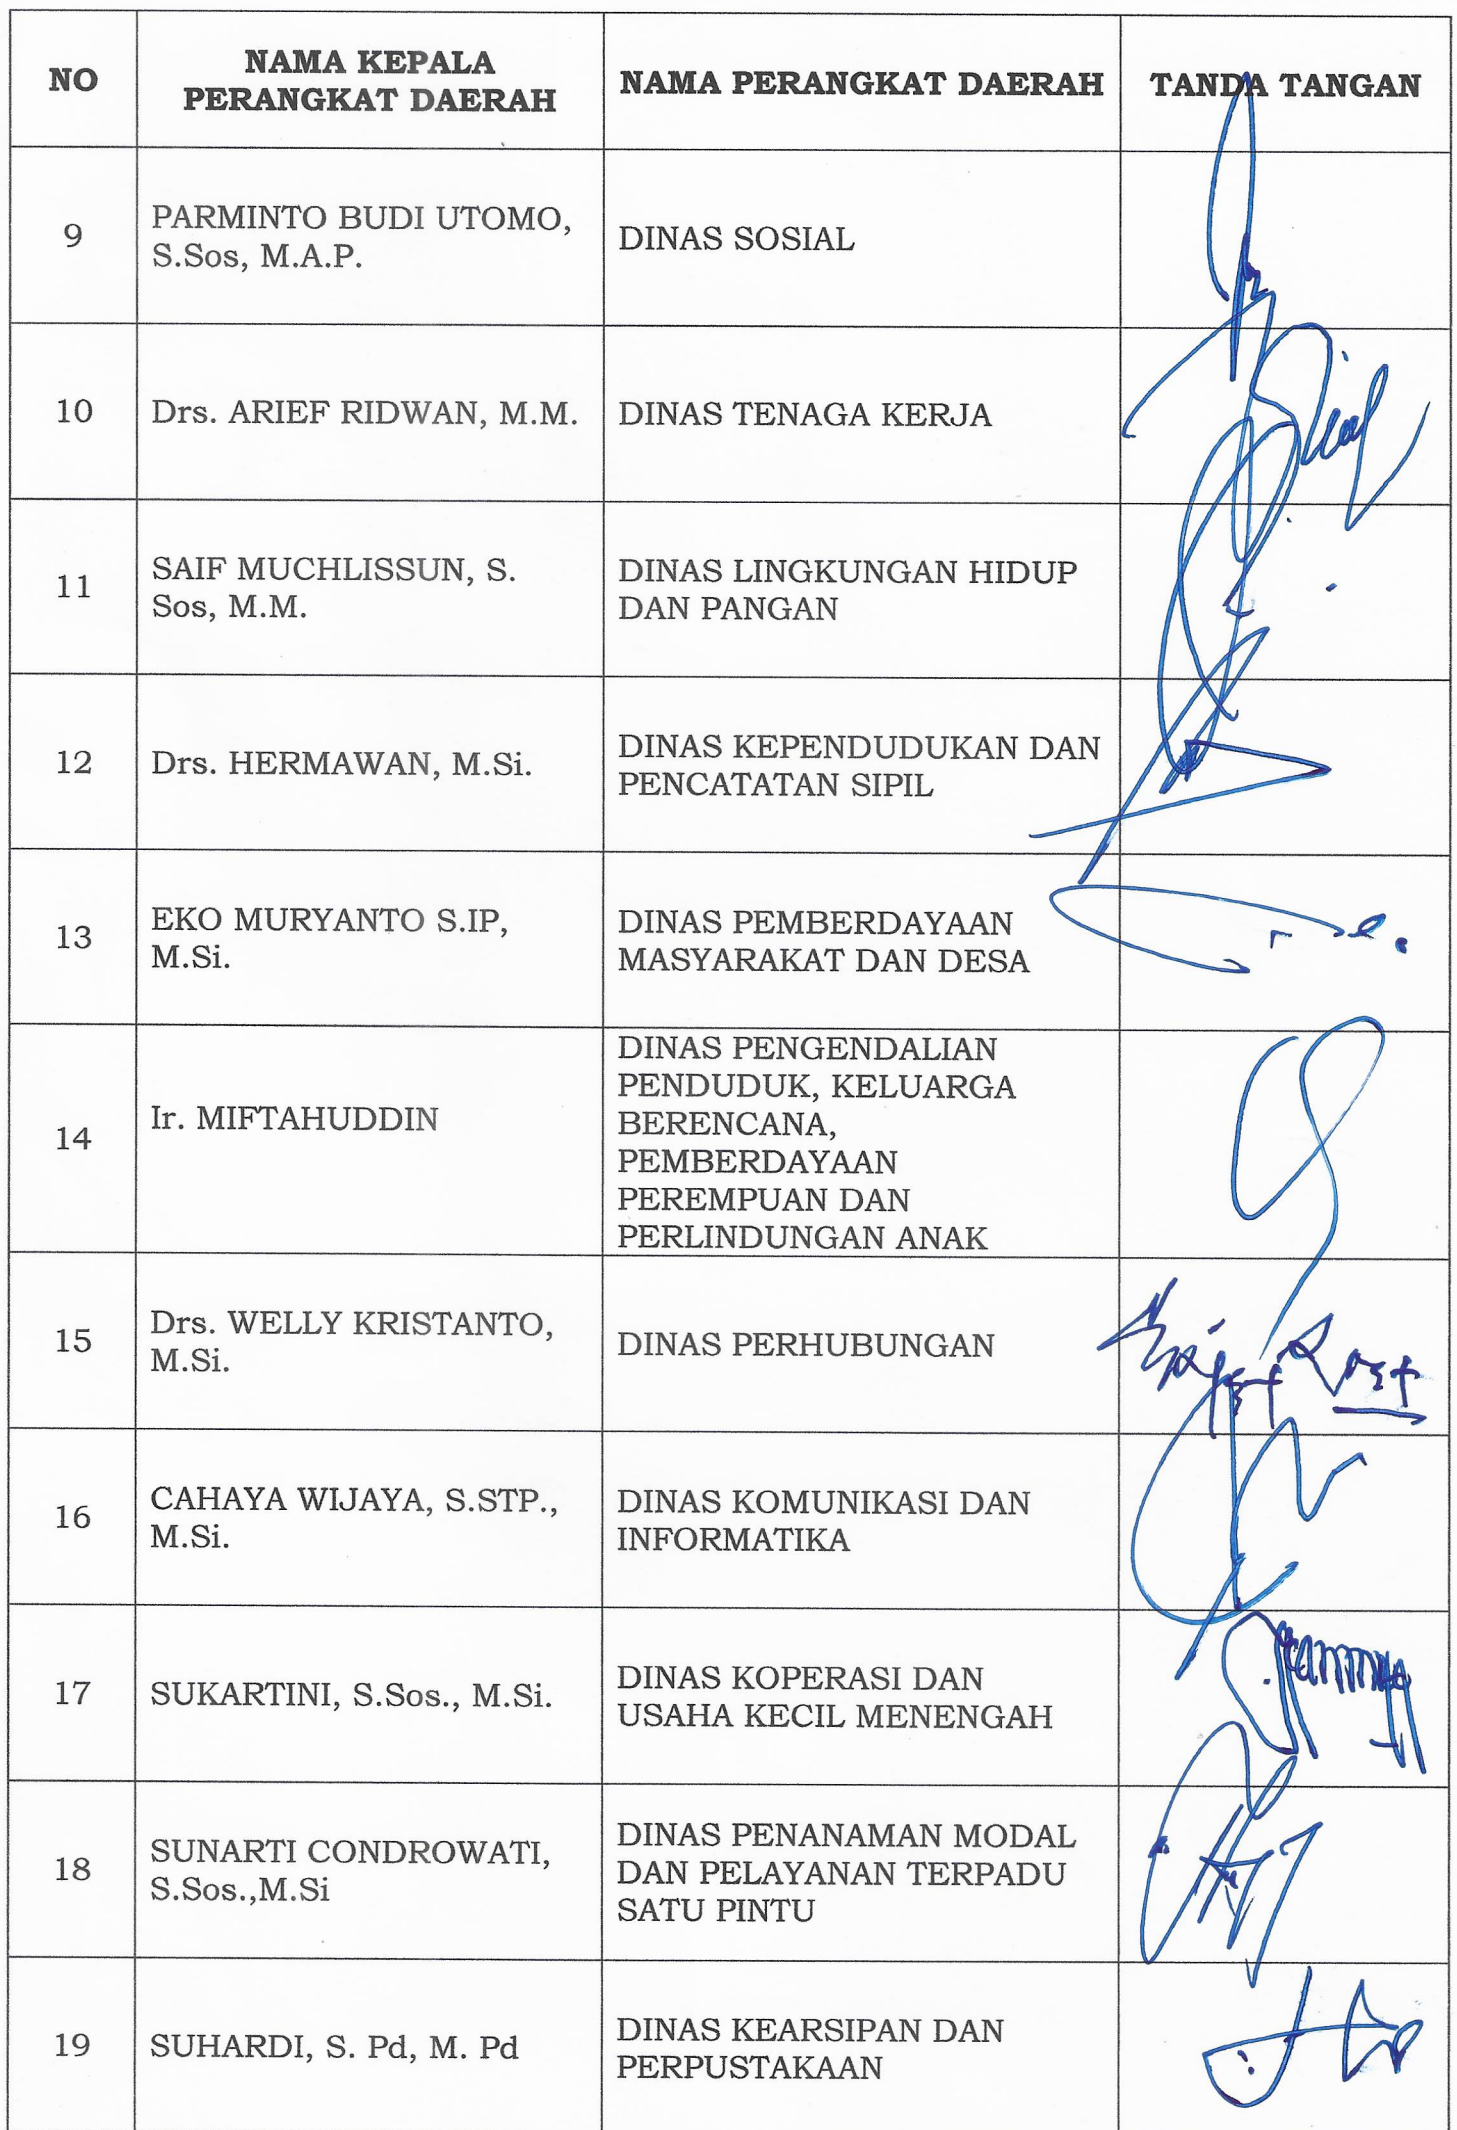 NO
NAMA KEPALA
PERANGKAT DAERAH
NAMA PERANGKAT DAERAH
TANDA TANGAN
9
PARMINTO BUDI UTOMO,
S.Sos, M.A.P.
DINAS SOSIAL
10
Drs. ARIEF RIDWAN, M.M.
DINAS TENAGA KERJA
11
SAIF MUCHLISSUN, S.
Sos, M.M.
DINAS LINGKUNGAN HIDUP
DAN PANGAN
12
Drs. HERMAWAN, M.Si.
DINAS KEPENDUDUKAN DAN
PENCATATAN SIPIL
13
EKO MURYANTO S.IP,
M.Si.
DINAS PEMBERDAYAAN
MASYARAKAT DAN DESA
14
Ir. MIFTAHUDDIN
DINAS PENGENDALIAN
PENDUDUK, KELUARGA
BERENCANA,
PEMBERDAYAAN
PEREMPUAN DAN
PERLINDUNGAN ANAK
15
Drs. WELLY KRISTANTO,
M.Si.
DINAS PERHUBUNGAN
16
CAHAYA WIJAYA, S.STP.,
M.Si.
DINAS KOMUNIKASI DAN
INFORMATIKA
17
SUKARTINI, S.Sos., M.Si.
DINAS KOPERASI DAN
USAHA KECIL MENENGAH
18
SUNARTI CONDROWATI,
S.Sos.,M.Si
DINAS PENANAMAN MODAL
DAN PELAYANAN TERPADU
SATU PINTU
19
SUHARDI, S. Pd, M. Pd
DINAS KEARSIPAN DAN
PERPUSTAKAAN